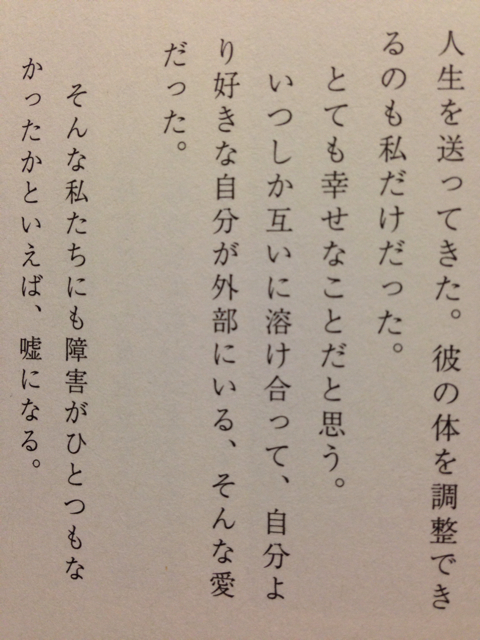 人生を送ってきた。彼の体を調整でき
るのも私だけだった。
とても幸せなことだと思う。
いつしか互いに溶け合って、自分よ
り好きな自分が外部にいる、そんな愛
だった。
そんな私たちにも障害がひとつもな
かったかといえば、嘘になる。